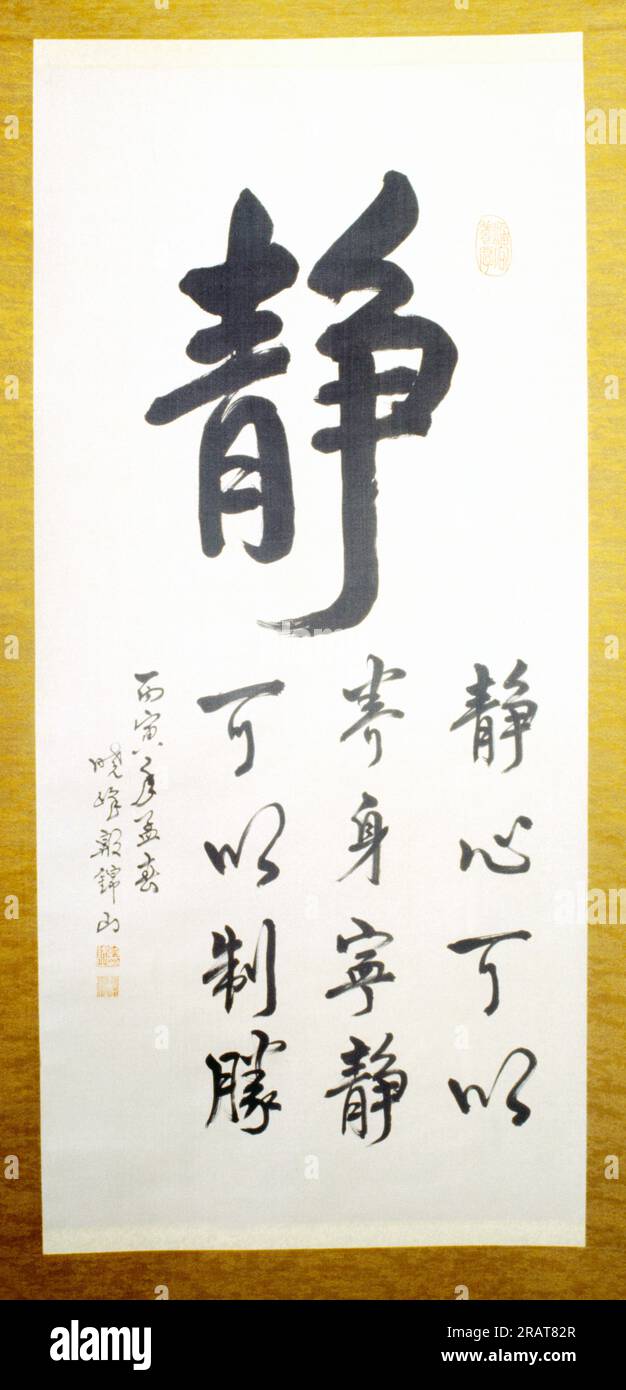 静
静心可以
养身宁静
可以制勝
丙寅年孟春
曉峰 錦山
alamy
Image ID: 2RAT82R
www.alamy.com